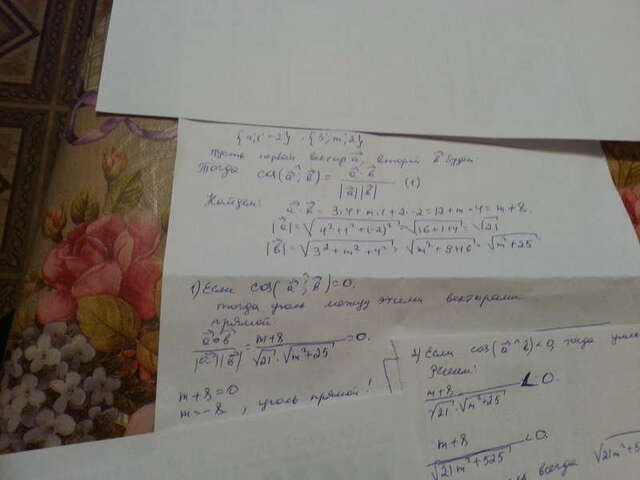 {4; 1; -2} · {3; m; 2}
Пусть первый вектор a⃗, второй b⃗ будет
Тогда cos(a⃗^b⃗) = a⃗·b⃗ / |a⃗||b⃗| (1)
Найдем: a⃗·b⃗ = 3·4 + m·1 + 2·-2 = 12 + m - 4 = m + 8.
|a⃗| = √(4² + 1² + (-2)²) = √(16+1+4) = √21
|b⃗| = √(3² + m² + 4²) = √(m² + 9 + 16) = √(m² + 25)
1) Если cos(a⃗^b⃗) = 0.
тогда угол между этими векторами
прямой.
a⃗·b⃗ / |a⃗||b⃗| = m+8 / √21 · √(m²+25) = 0.
m + 8 = 0
m = -8, уголь прямой!
2) Если cos(a⃗^b⃗) < 0, тогда
Решим:
m+8 / √21 · √(m²+25) < 0.
m+8 / √(21m²+525) < 0.
всегда